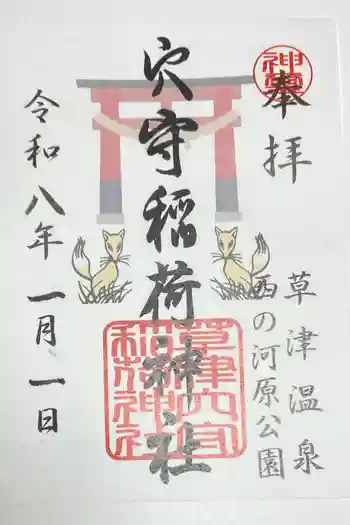 奉拝
草津温泉
西の河原公園
穴守稲荷神社
草津穴守稲荷神社
令和八年一月一日